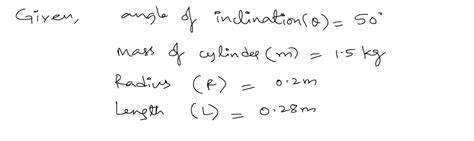 Given, angle of inclination(θ) = 50°
mass of cylinder (m) = 1.5 kg
Radius (R) = 0.2m
Length (L) = 0.28m